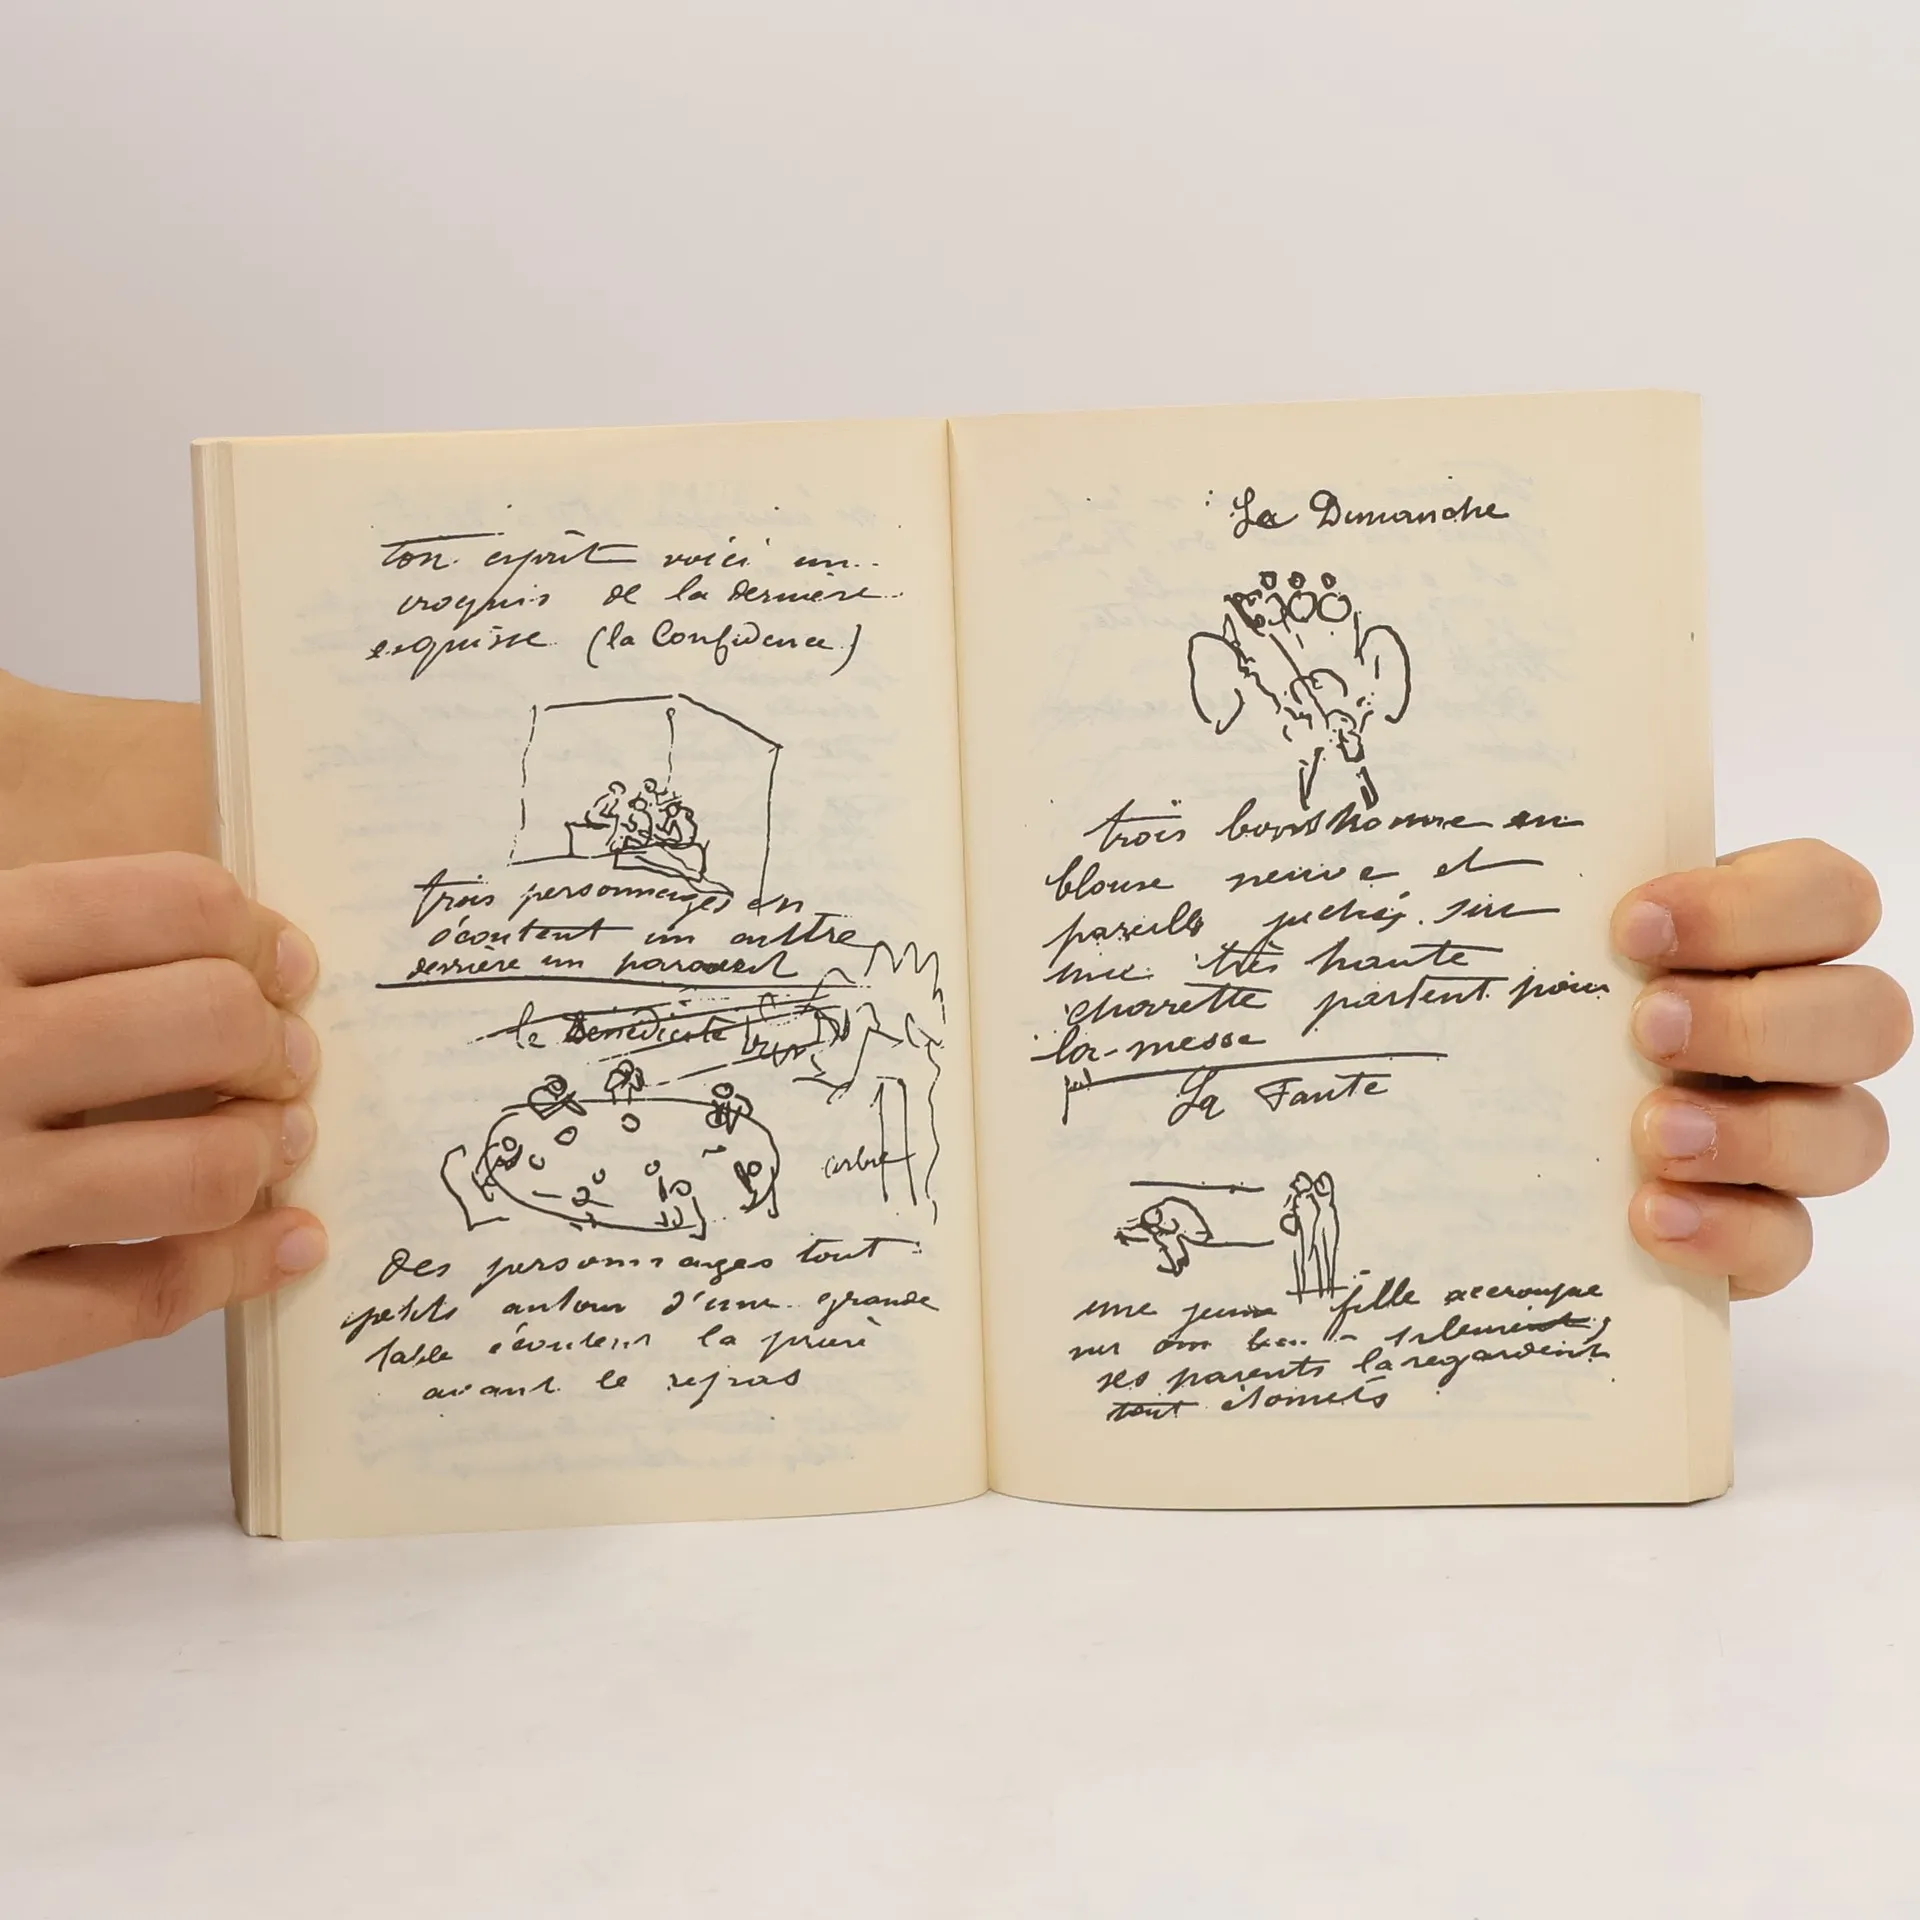 ton esprit voici un
croquis de la dernière
esquisse (la Confidence)
trois personnages en
écoutent un auttre
derrière un paravent
le Bénédicité
arbre
Des personnages tout
petits autour d'une grande
table écoutent la prière
avant le repas
Le Dimanche
trois bonshomme en
blouse neuve et
pareille juchés sur
une très haute
charrette partent pour
la messe
La Faute
une jeune fille accroupie
sur un
ses parents la regardent
tout étonnés